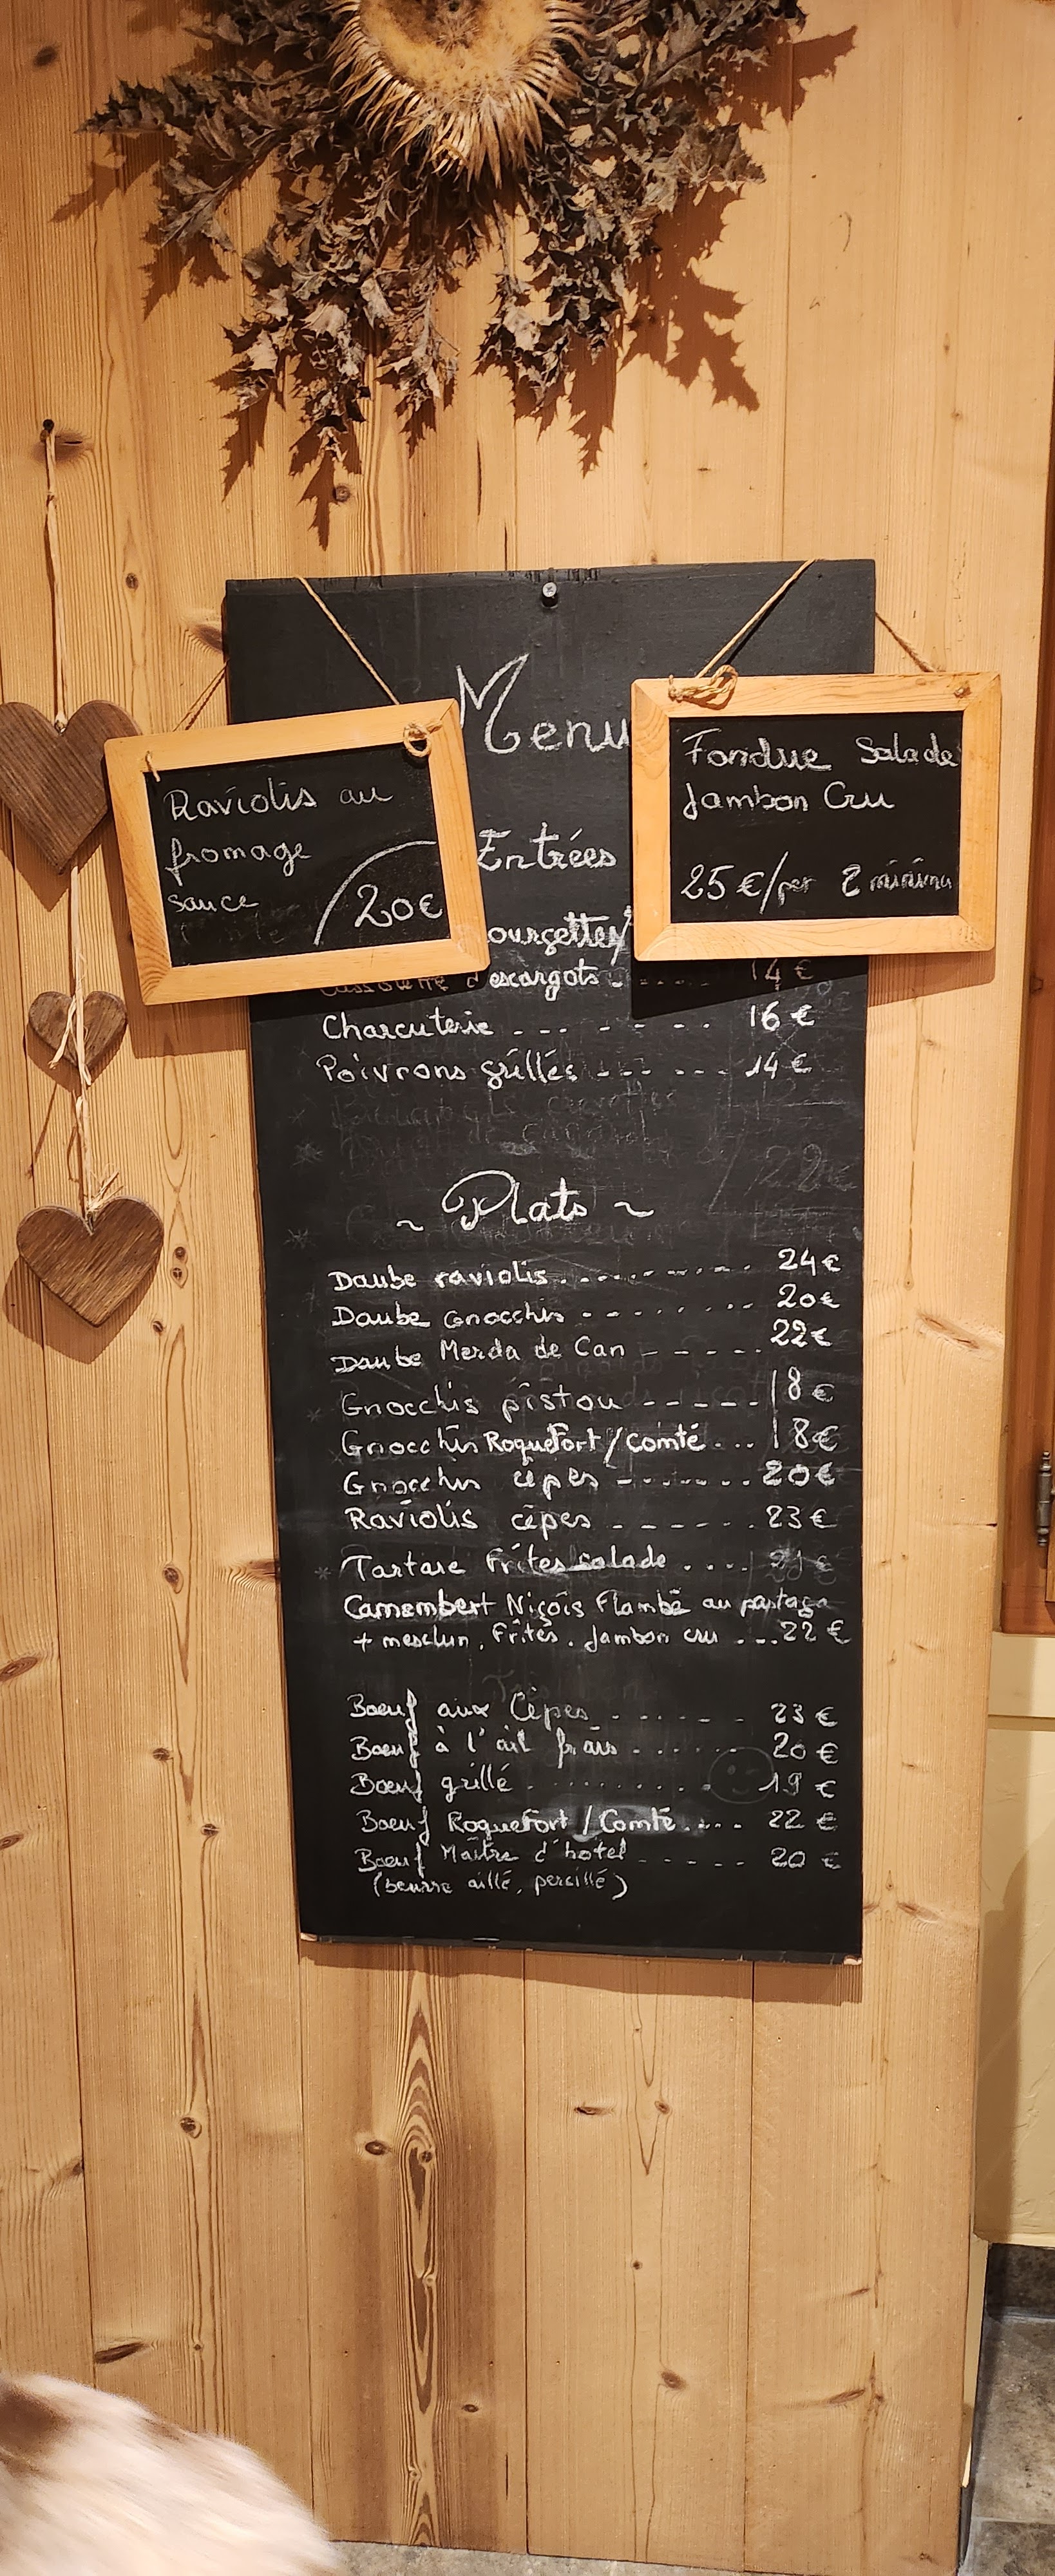 Menu
Raviolis au
fromage
sauce
20€
Fondue Salade
Jambon Cru
25€/per 2 minimu
Entrées
ourgettes
d'escargots - .... 14 €
Charcuterie . - - - - - . 16 €
Poivrons grillés - - - - - - 14 €
~ Plats ~
Daube raviolis . . - . . - . - - - . 24€
Daube Gnocchis - - - - . . - - 20€
Daube Merda de Can - - - - - 22€
Gnocchis pistou - - - - - 18 €
Gnocchis Roquefort / Comté . . . 18€
Gnocchis cèpes - - - . - . . 20€
Raviolis cèpes - - - - - . 23€
* Tartare Frites salade . . . .
Camembert Niçois Flambé au pastaga
+ mesclun, Frites, jambon cru . . . 22 €
Boeuf aux Cèpes . . - . - - 23 €
Boeuf à l'ail frais - . . . . . 20 €
Boeuf grillé . . . . . . . . . . 19 €
Boeuf Roquefort / Comté . . . . 22 €
Boeuf Maître d'hôtel - - - - - - 20 €
(beurre aillé, persillé)